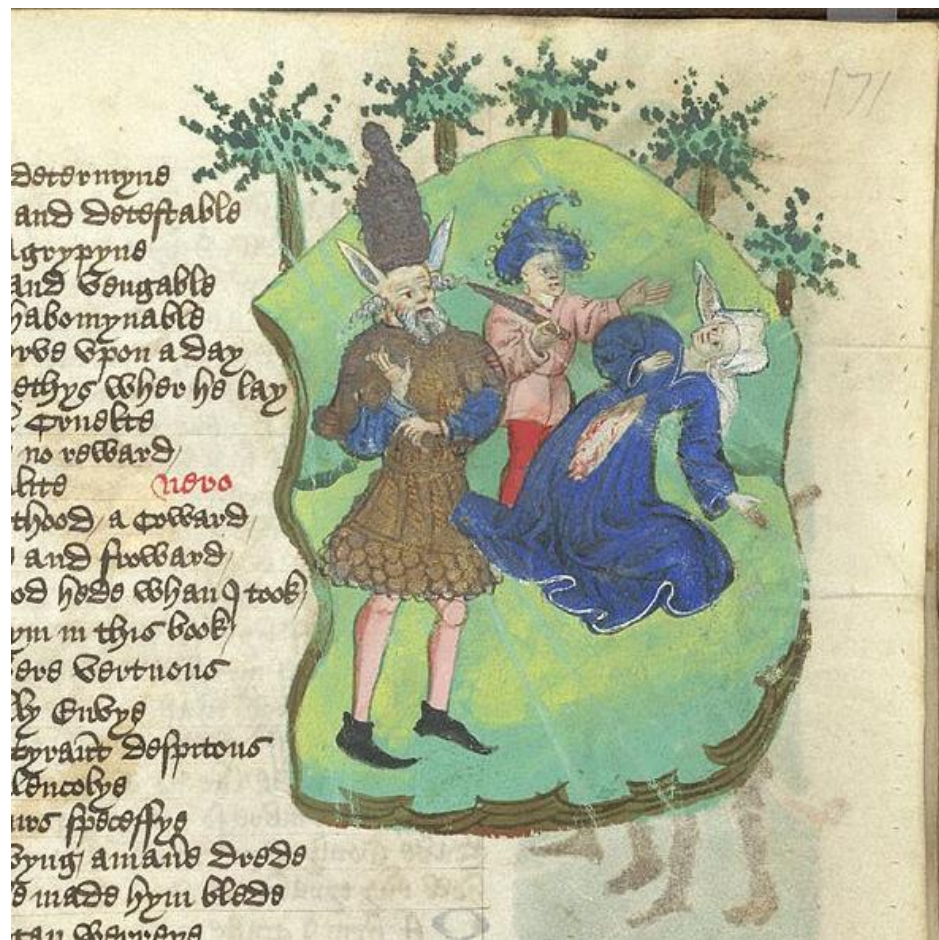 171
determyne
and detestable
agrypyne
and vengable
habomynable
rve vpon a day
ethys wher he lay
Cruelte
no reward
lite nero
thood a Coward
and froward
od hede whan I took
ym in this book
ere vertuous
By Envye
tyraunt despitous
lencolye
urs speceffye
yng a mane drede
made hym blede